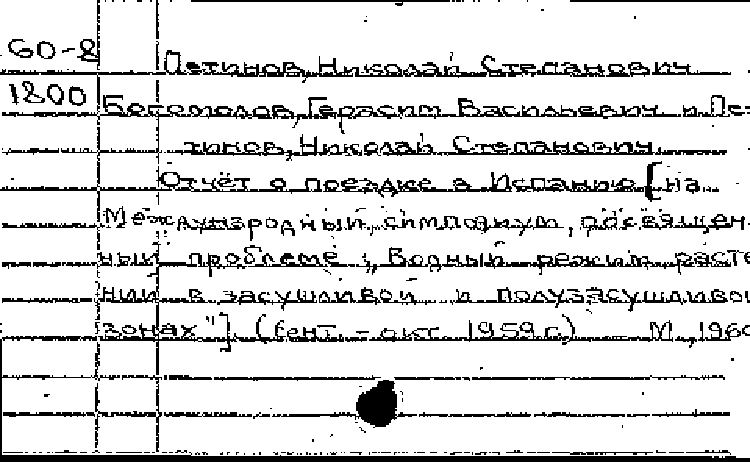 60-8 Петинов, Николай Степанович
1800 Богомолов, Герасим Васильевич и Пе-
тинов, Николай Степанович.
Отчёт о поездке в Испанию [на
Международный симпозиум, посвящен-
ный проблеме: „Водный режим расте
ний в засушливой и полузасушливой
зонах"]. (сент. - окт. 1959 г.) М., 1960